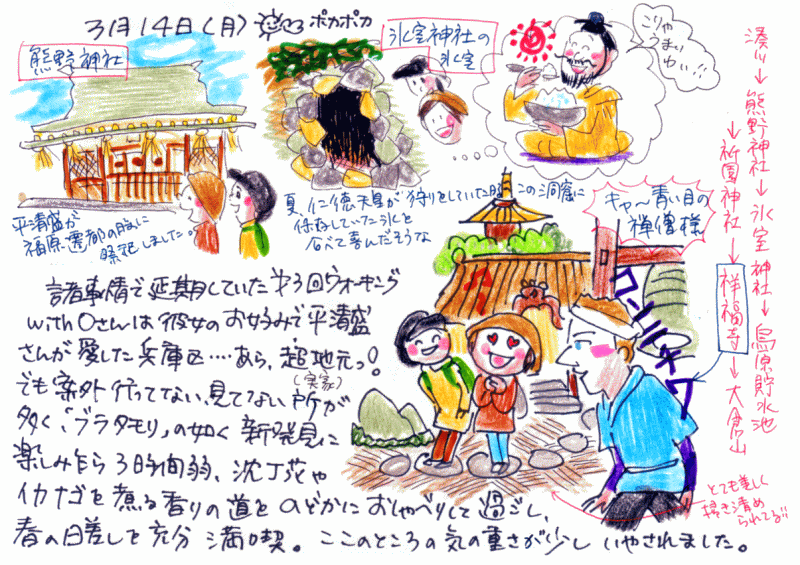 3月14日(月) ポカポカ
熊野神社
氷室神社の
氷室
こりゃ
うまい
わい!!
平清盛が
福原遷都の時に
祭祀しました。
夏、仁徳天皇が狩りをしていた時、この洞窟に
保存していた氷を
食べて喜んだそうな
キャ〜青い目の
禅僧様
湊川→熊野神社→氷室神社→烏原貯水池
→祇園神社→祥福寺→大倉山
コンニチワ
諸事情で延期していた第3回ウォーキング
with Oさんは彼女のお好みで平清盛
さんが愛した兵庫区‥‥あら、超地元っ!
(実家)
でも案外行ってない、見てない所が
多く、「ブラタモリ」の如く新発見に
楽しみ乍ら3時間弱、沈丁花や
イカナゴを煮る香りの道をのどかにおしゃべりして過ごし、
春の日差しを充分満喫。ここのところの気の重さが少しいやされました。
とても美しく
掃き清め
られてる!!